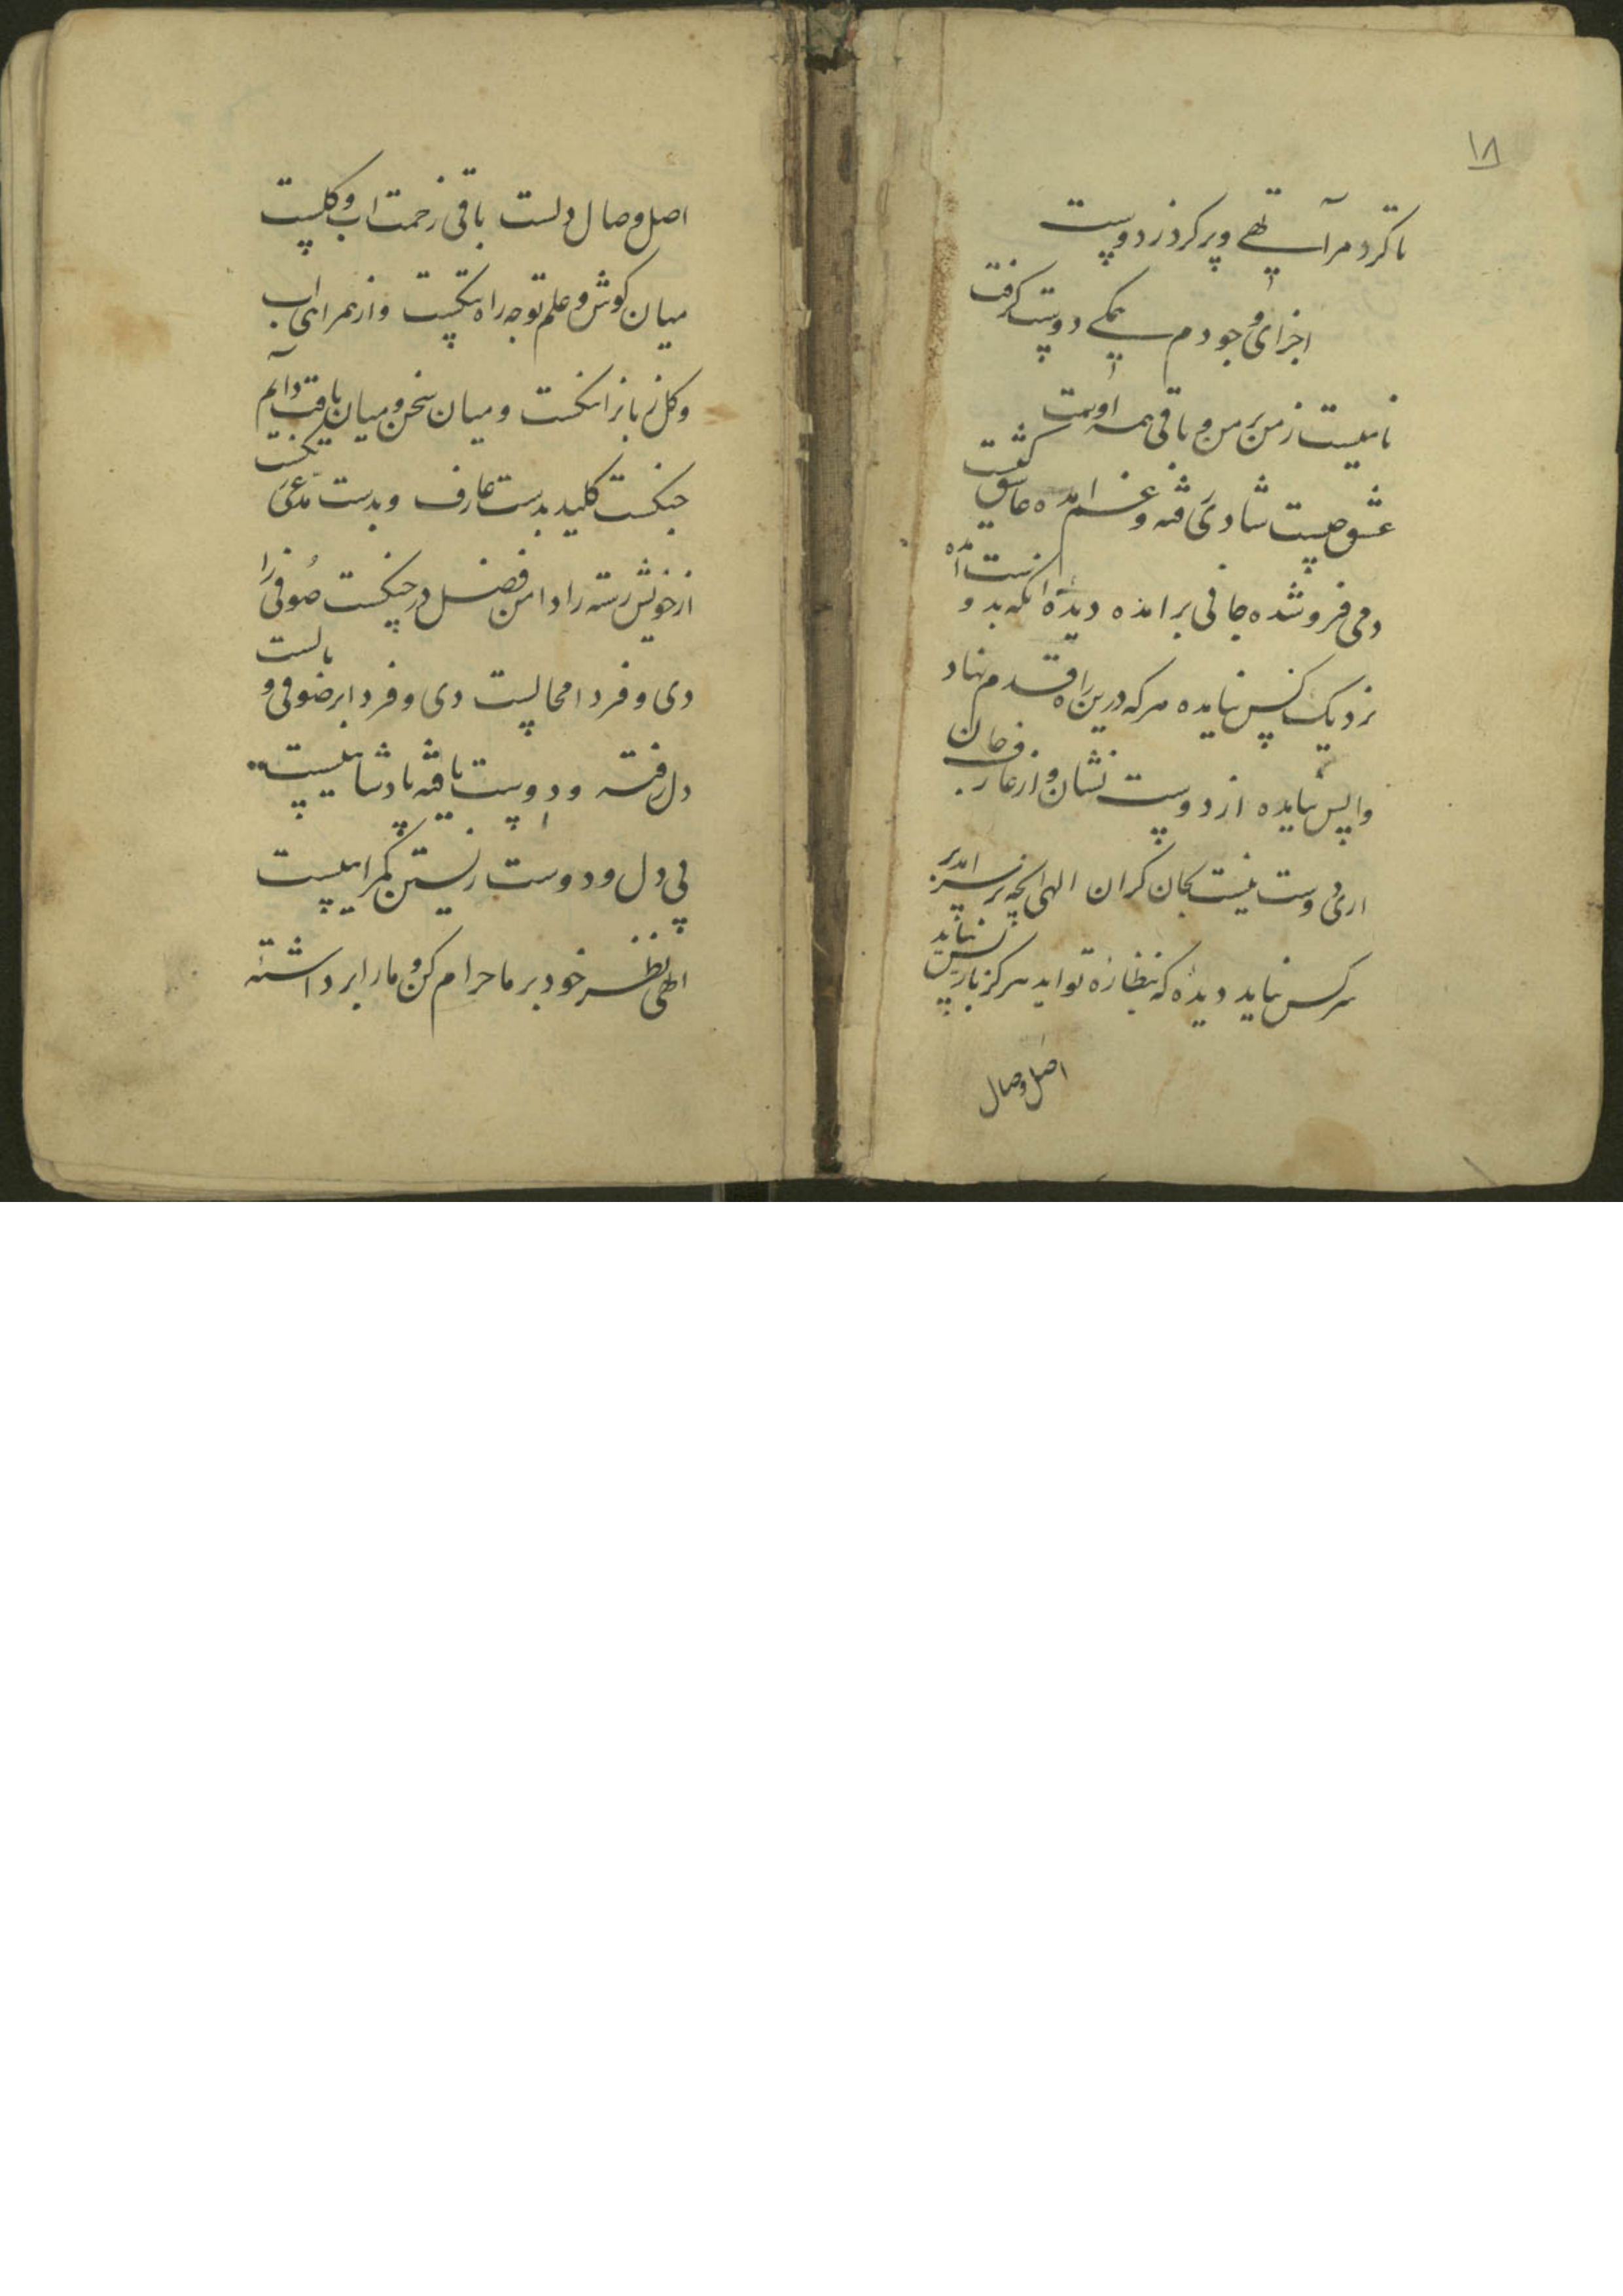 ١٨
تا کرد مرا تهی و پر کرد ز دوست
اجزای وجودم همکی دوست گرفت
نامیست ز من بر من و باقی همه اوست
عشق چیست شادی رفته و غم امده عاشق کیست
دمی فرو شده جانی برامده دیدۀ انکه بدو
نزدیک کس نیامده هرکه درین راه قدم نهاد
واپس نیامده از دوست نشان و از عارف جان
اری دوست نیست بجان کران الهی انچه بر سر امد بر
سر کس نیاید دیدۀ که بنظارۀ تو اید هرکز باز پس نیاید
اصل وصال
اصل وصال دلست باقی زحمت اب و کلست
میان کوش و علم توجه راه تنکست و از همراهی اب
و کل زبانرا ننکست و میان سخن و میان یافت دایم
جنکست کلید بدست عارف و بدست مدعی نکست
از خویش رسته را دامن فضل در چنکست صوفی را
دی و فردا محالست دی و فردا بر صوفی وبالست
دل رفته و دوست یافته پادشاهیست
بی دل و دوست زیستن کمراهیست
الهی نظر خود بر ما حرام کن و ما را برداشته